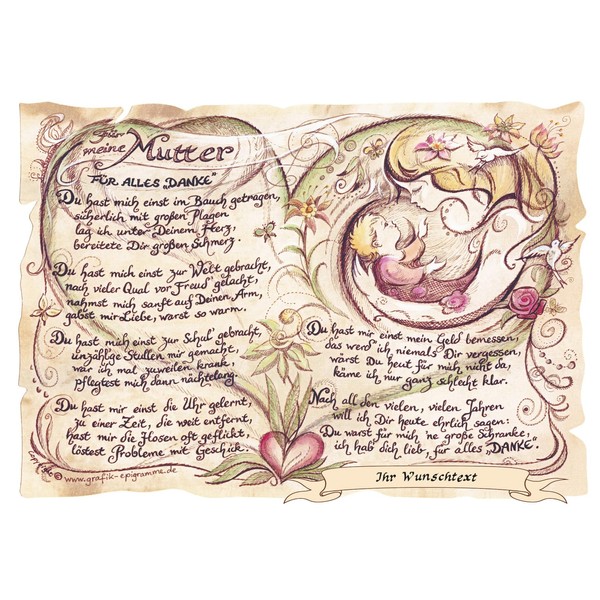 Für
meine Mutter
FÜR ALLES „DANKE“
Du hast mich einst im Bauch getragen,
sicherlich mit großen Plagen
lag ich unter Deinem Herz,
bereitete Dir großen Schmerz.
Du hast mich einst zur Welt gebracht,
nach vieler Qual vor Freud' gelacht,
nahmst mich sanft auf Deinen Arm,
gabst mir Liebe, warst so warm.
Du hast mich einst zur Schul' gebracht,
unzählge Stullen mir gemacht,
war ich mal zuweilen krank,
pflegtest mich dann nächtelang.
Du hast mir einst die Uhr gelernt,
zu einer Zeit, die weit entfernt,
hast mir die Hosen oft geflickt,
löstest Probleme mit Geschick.
Du hast mir einst mein Geld bemessen,
das werd' ich niemals Dir vergessen,
wärst Du heut für mich nicht da,
käme ich nur ganz schlecht klar.
Nach all den vielen, vielen Jahren
will ich Dir heute ehrlich sagen:
Du warst für mich 'ne große Schranke,
ich hab' dich lieb, für alles „DANKE“.
© www.grafik-epigramme.de
Ihr Wunschtext